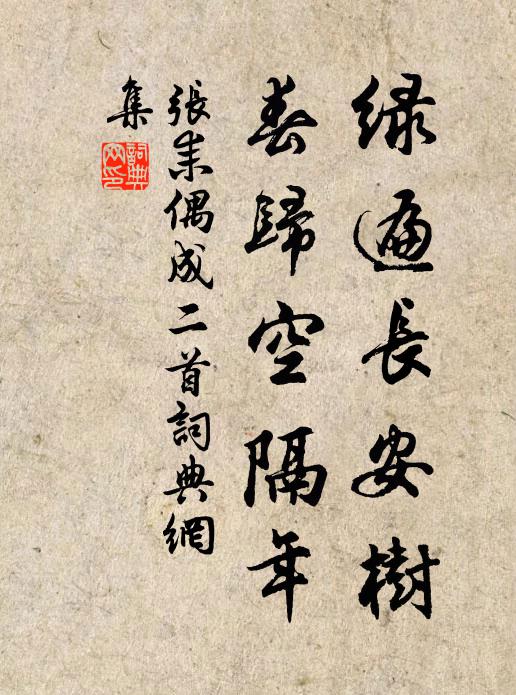 綠遍長安樹
春歸空隔年
張耒偶成二首詞典網
集
詞典網印